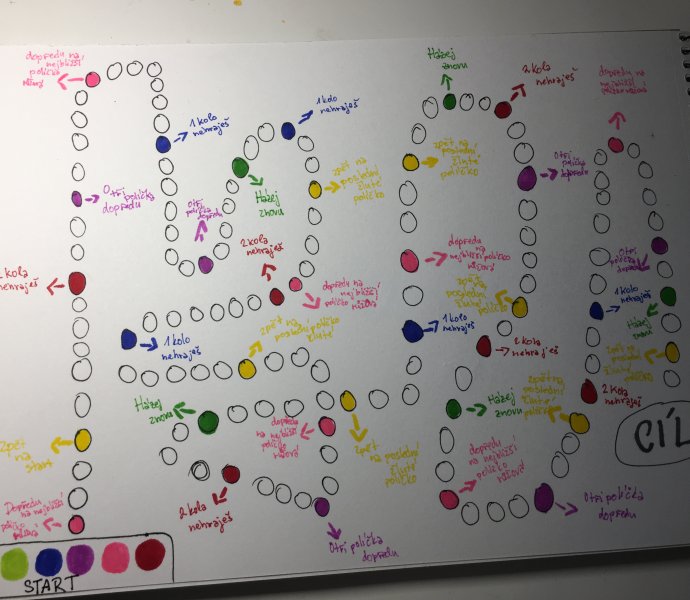 dopředu na
nejbližší
políčko
růžový
1 kolo
nehraješ
1 kolo
nehraješ
Házej
znovu
2 kola
nehraješ
dopředu na
nejbližší
O tři políčka
dopředu
O tři
políčka
dopředu
Házej
znovu
zpět na
poslední
žluté
políčko
zpět na
poslední
žluté
políčko
O tři
políčka
dopředu
2 kola
nehraješ
2 kola
nehraješ
dopředu na
nejbližší
políčko růžový
dopředu
na
nejbližší políčko
růžový
zpět na
poslední
žluté
políčko
O tři
políčka
dopředu
1 kolo
nehraješ
Házej
znovu
1 kolo
nehraješ
zpět na
poslední políčko
žluté
1 kolo
nehraješ
2 kola
nehraješ
zpět na
poslední
žluté
políčko
2 kola
nehraješ
Házej
znovu
dopředu
na nejbližší
políčko
růžový
Házej
znovu
zpět na
poslední
žluté
políčko
CÍL
zpět
na
start
2 kola
nehraješ
zpět
na poslední
žluté
políčko
dopředu
na nejbližší
políčko
růžový
O tři políčka
dopředu
Dopředu na nejbližší
políčko
O tři políčka
dopředu
START